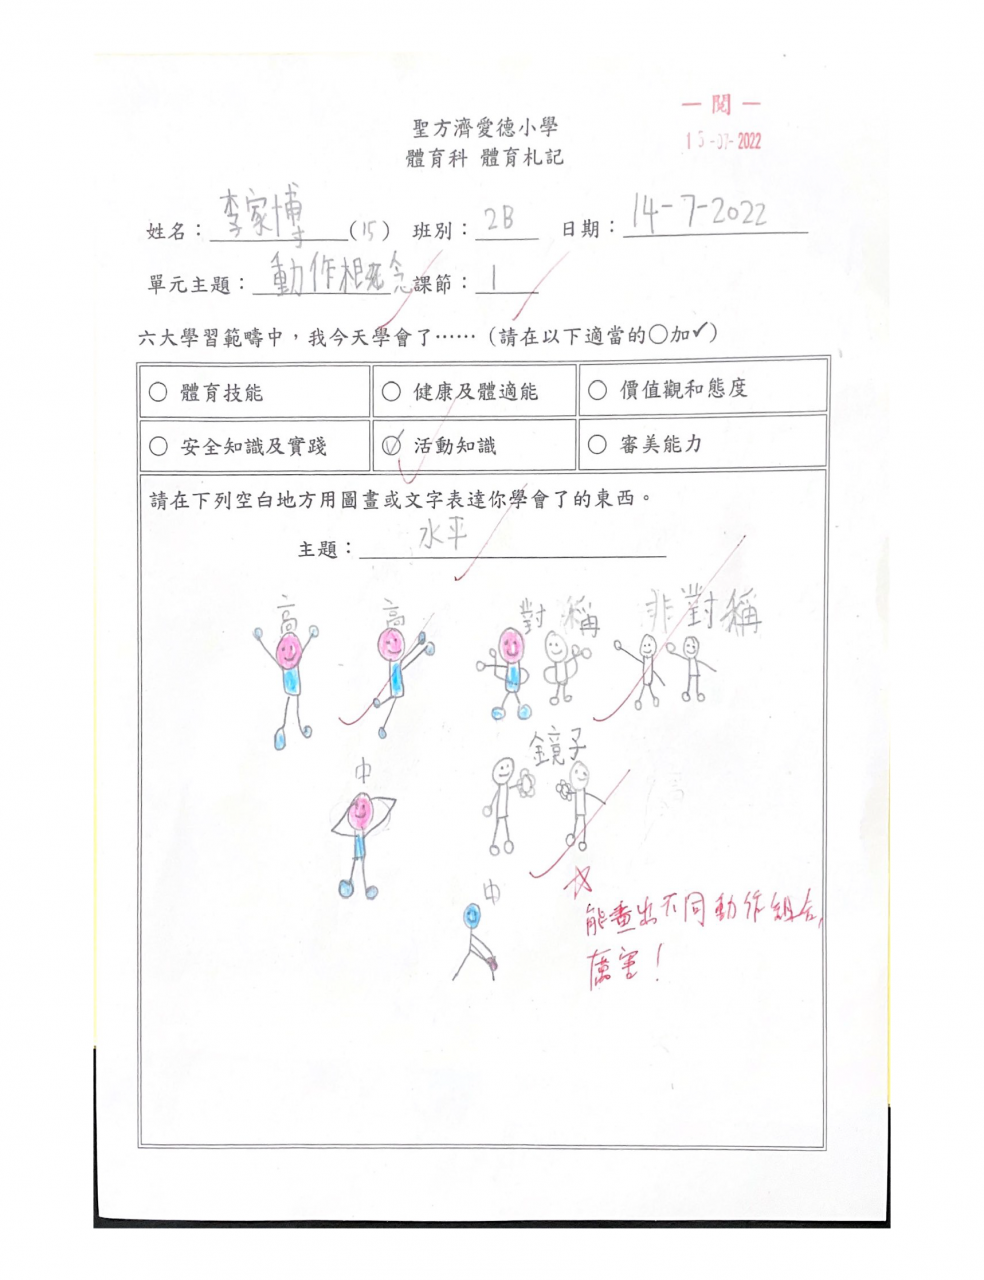 一 閱 一
15-07-2022
聖方濟愛德小學
體育科 體育札記
姓名：李家博（15） 班別：2B 日期：14-7-2022
單元主題：動作概念 課節：1
六大學習範疇中，我今天學會了……（請在以下適當的○加✓）
○ 體育技能 ○ 健康及體適能 ○ 價值觀和態度
○ 安全知識及實踐 ✓ 活動知識 ○ 審美能力
請在下列空白地方用圖畫或文字表達你學會了的東西。
主題：水平
高 高 對稱 非對稱
鏡子
中
中
能畫出不同動作組合，
厲害！